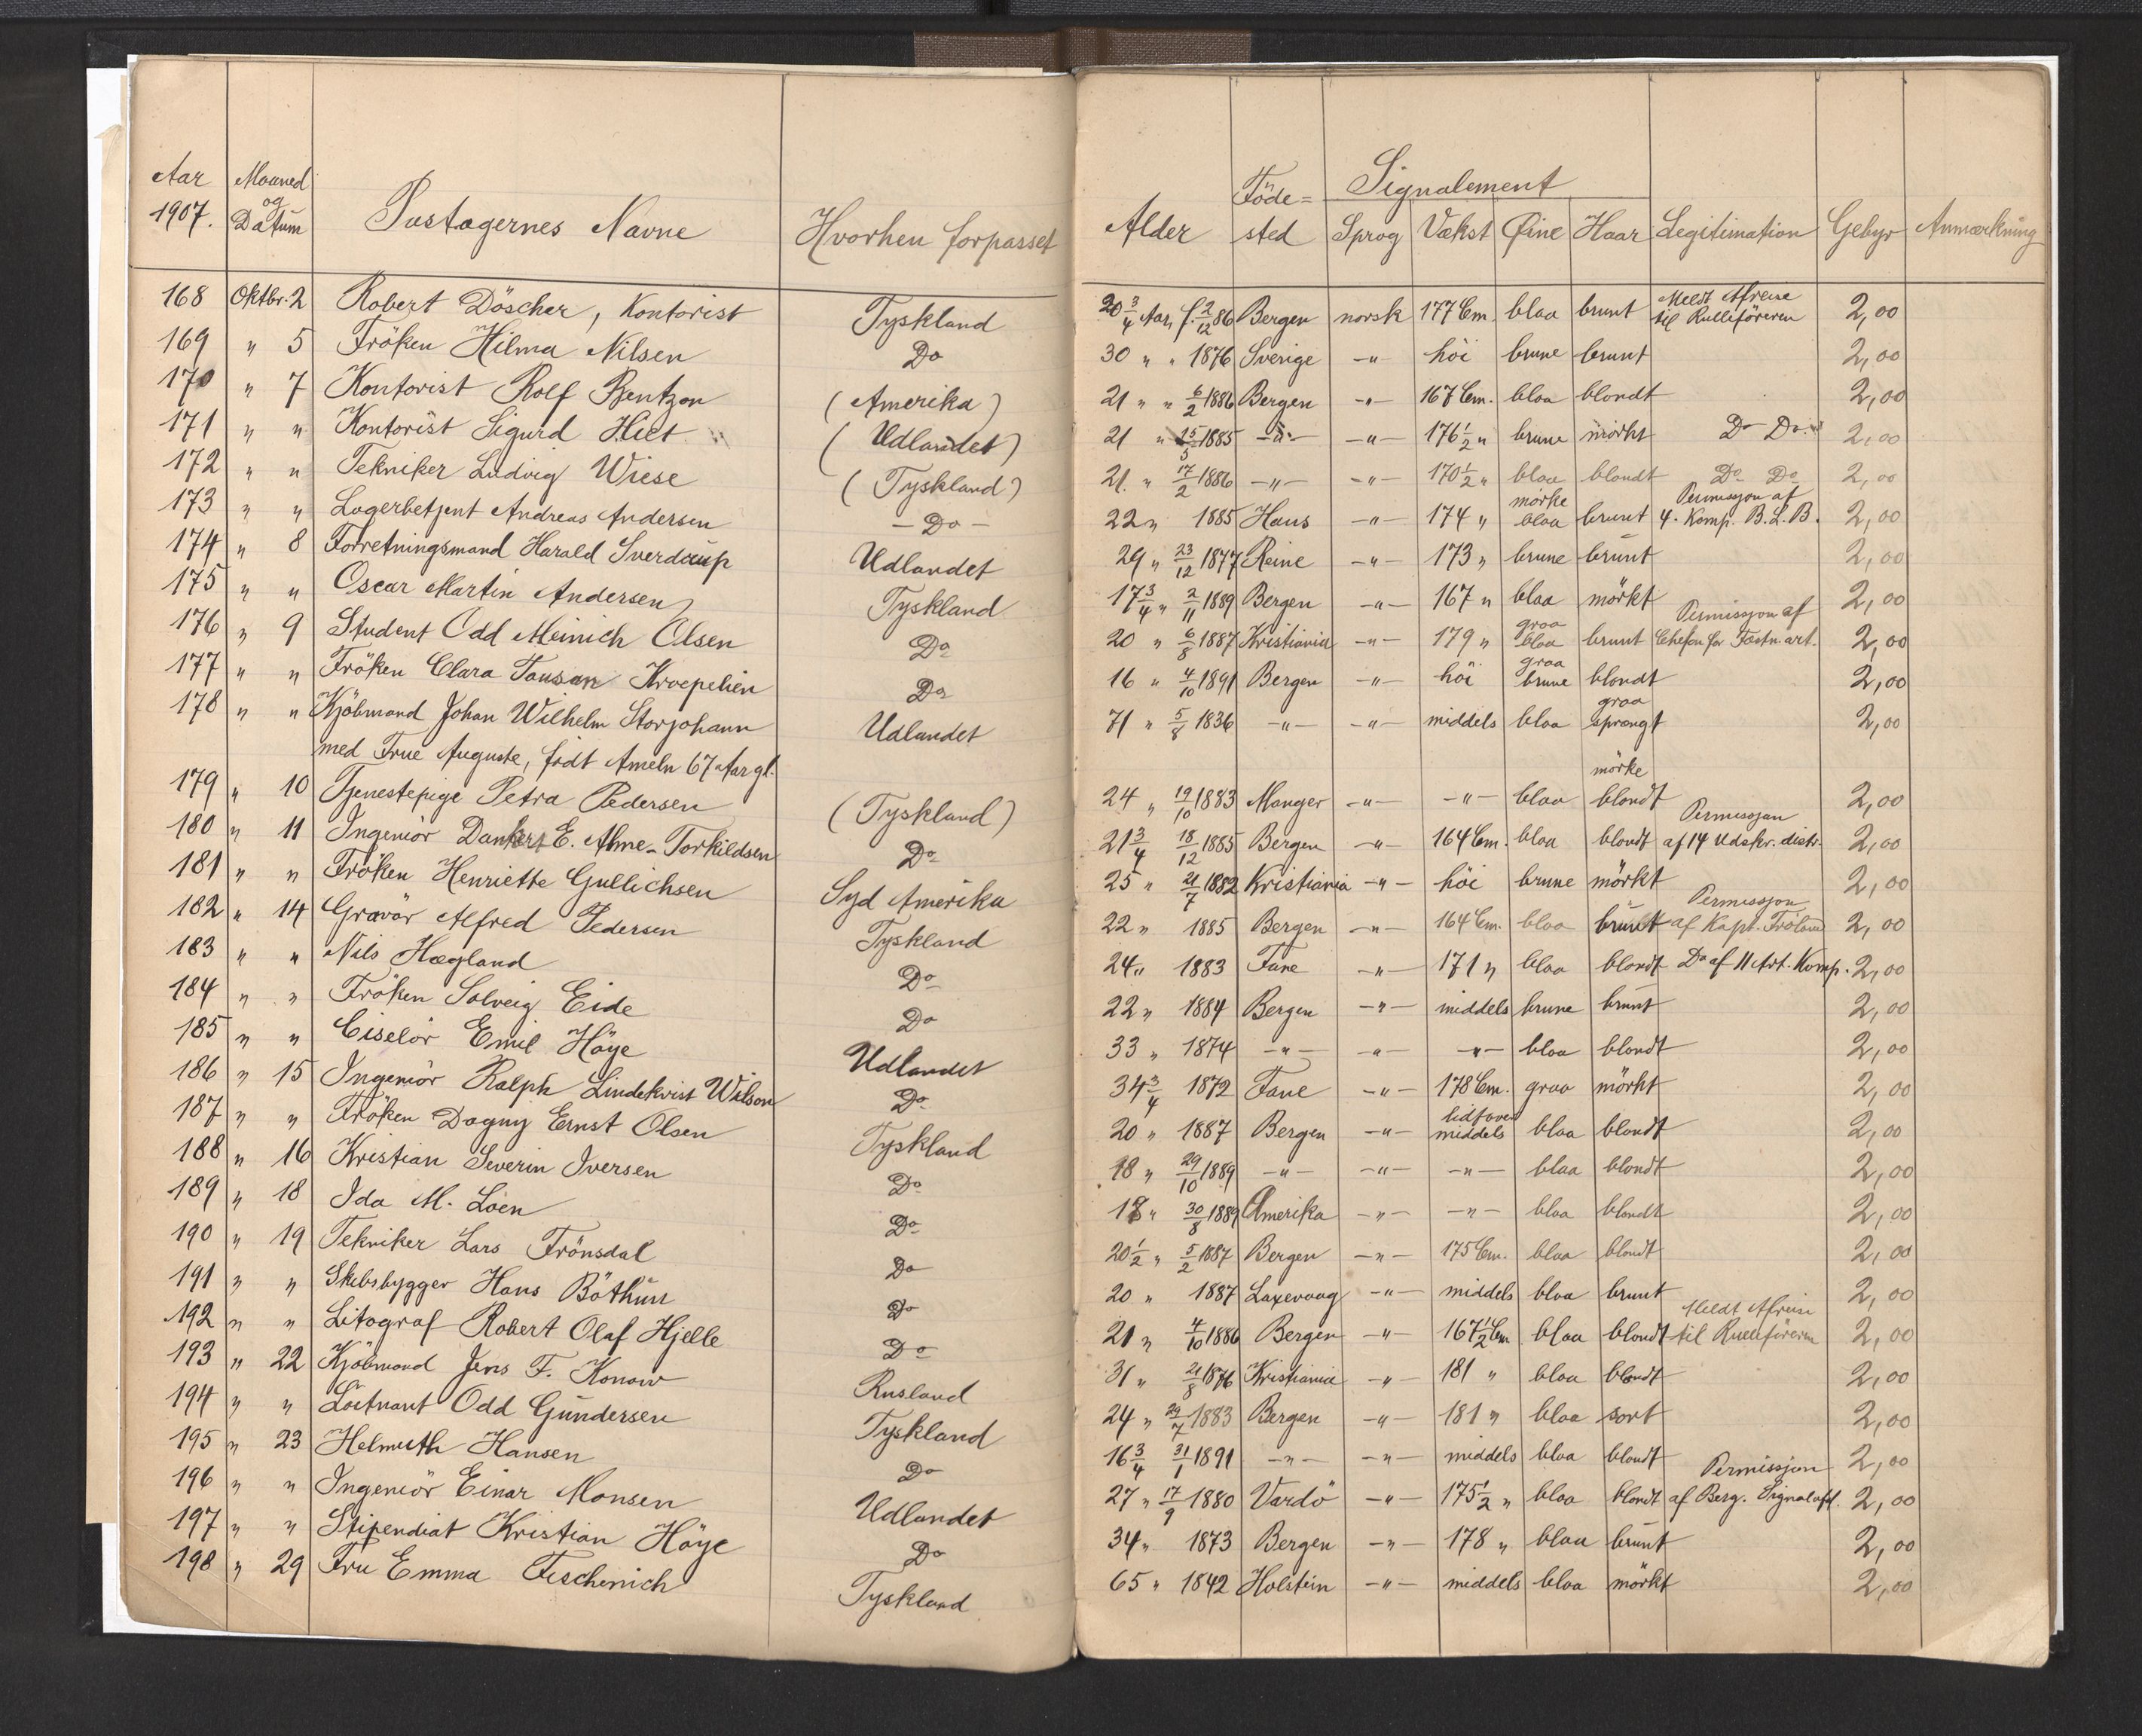 Aar Maaned
1907. og
Datum
Pastagernes Navne
Hvorhen forpasset
168 Oktbr. 2 Robert Döscher, Kontorist Tyskland
169 " 5 Fröken Hilma Nilsen Do
170 " 7 Kontorist Rolf Bentzon (Amerika)
171 " " Kontorist Sigurd Hiet (Udlandet)
172 " " Tekniker Ludvig Wiese (Tyskland)
173 " " Lagerbetjent Andreas Andersen - Do -
174 " 8 Forretningsmand Harald Sverdrup Udlandet
175 " " Oscar Martin Andersen Tyskland
176 " 9 Student Odd Meinich Olsen Do
177 " " Fröken Clara Tousan Kroepelien Do
178 " " Kjöbmand Johan Wilhelm Storjohann Udlandet
med Frue Auguste, födt Ameln 67 Aar gl.
179 " 10 Tjenestepige Petra Pedersen (Tyskland)
180 " 11 Ingeniör Dankert E. Alme-Torkildsen Do
181 " " Fröken Henriette Gullichsen Syd Amerika
182 " 14 Gravör Alfred Pedersen Tyskland
183 " " Nils Hægland Do
184 " " Fröken Solveig Eide Do
185 " " Ciselör Emil Höye Udlandet
186 " 15 Ingeniör Ralph Lindekvist Wilson Do
187 " " Fröken Dagny Ernst Olsen Tyskland
188 " 16 Kristian Severin Iversen Do
189 " 18 Ida M. Loen Do
190 " 19 Tekniker Lars Frönsdal Do
191 " " Skibsbygger Hans Böthun Do
192 " " Litograf Robert Olaf Hjelle Do
193 " 22 Kjöbmand Jens F. Konow Rusland
194 " " Löitnant Odd Gundersen Tyskland
195 " 23 Helmuth Hansen Do
196 " " Ingeniör Einar Monsen Udlandet
197 " " Stipendiat Kristian Höye Do
198 " 29 Fru Emma Fischenich Tyskland
Signalement
Alder Födested Sprog Vækst Øine Haar Legitimation Gebyr Anmærkning
20 3/4 Aar, f. 2/12 86 Bergen norsk 177 Cm. blaa brunt Meldt Afreise til Rulleföreren 2,00
30 " " 1876 Sverige -"- höi brune brunt 2,00
21 " " 6/2 1886 Bergen -"- 167 Cm. blaa blondt 2,00
21 " 15/5 1885 -"- -"- 176 1/2 " brune mörkt Do Do 2,00
21 " 17/2 1886 -"- -"- 170 1/2 " blaa blondt Do Do 2,00
22 " 1885 Haus -"- 174 " mörke blaa brunt Permissjon af 4. Komp. B.L.B. 2,00
29 " 23/12 1877 Reine -"- 173 " brune brunt 2,00
17 3/4 " 2/11 1889 Bergen -"- 167 " blaa mörkt 2,00
20 " 6/8 1887 Kristiania -"- 179 " graa blaa brunt Permissjon af Chefen for Fæstn. art. 2,00
16 " 4/10 1891 Bergen -"- höi graa brune blondt 2,00
71 " 5/8 1836 -"- -"- middels blaa graa sprængt 2,00
24 " 19/10 1883 Manger -"- -"- blaa mörke blondt 2,00
21 3/4 18/12 1885 Bergen -"- 164 Cm. blaa blondt Permissjon af 14 Udskr. distr. 2,00
25 " 21/7 1882 Kristiania -"- höi brune mörkt 2,00
22 " 1885 Bergen -"- 164 Cm. blaa brunt Permissjon af Kapt. Fröland 2,00
24 " 1883 Fane -"- 171 " blaa blondt Do af 11 Art. Komp. 2,00
22 " 1884 Bergen -"- middels brune brunt 2,00
33 " 1874 -"- -"- -"- blaa blondt 2,00
34 3/4 1872 Fane -"- 178 Cm. graa mörkt 2,00
20 " 1887 Bergen -"- lidt over middels blaa blondt 2,00
18 " 29/10 1889 -"- -"- -"- blaa blondt 2,00
18 " 30/8 1889 Amerika -"- -"- blaa blondt 2,00
20 1/2 " 5/2 1887 Bergen -"- 175 Cm. blaa blondt 2,00
20 " 1887 Laxevaag -"- middels blaa brunt 2,00
21 " 4/10 1886 Bergen -"- 167 1/2 Cm. blaa blondt Meldt Afreise til Rulleföreren 2,00
31 " 21/8 1876 Kristiania -"- 181 " blaa blondt 2,00
24 " 29/7 1883 Bergen -"- 181 " blaa sort 2,00
16 3/4 31/1 1891 -"- -"- middels blaa blondt 2,00
27 " 17/9 1880 Vardö -"- 175 1/2 " blaa blondt Permissjon af Berg. Signalafd. 2,00
34 " 1873 Bergen -"- 178 " blaa brunt 2,00
65 " 1842 Holstein -"- middels blaa mörkt 2,00